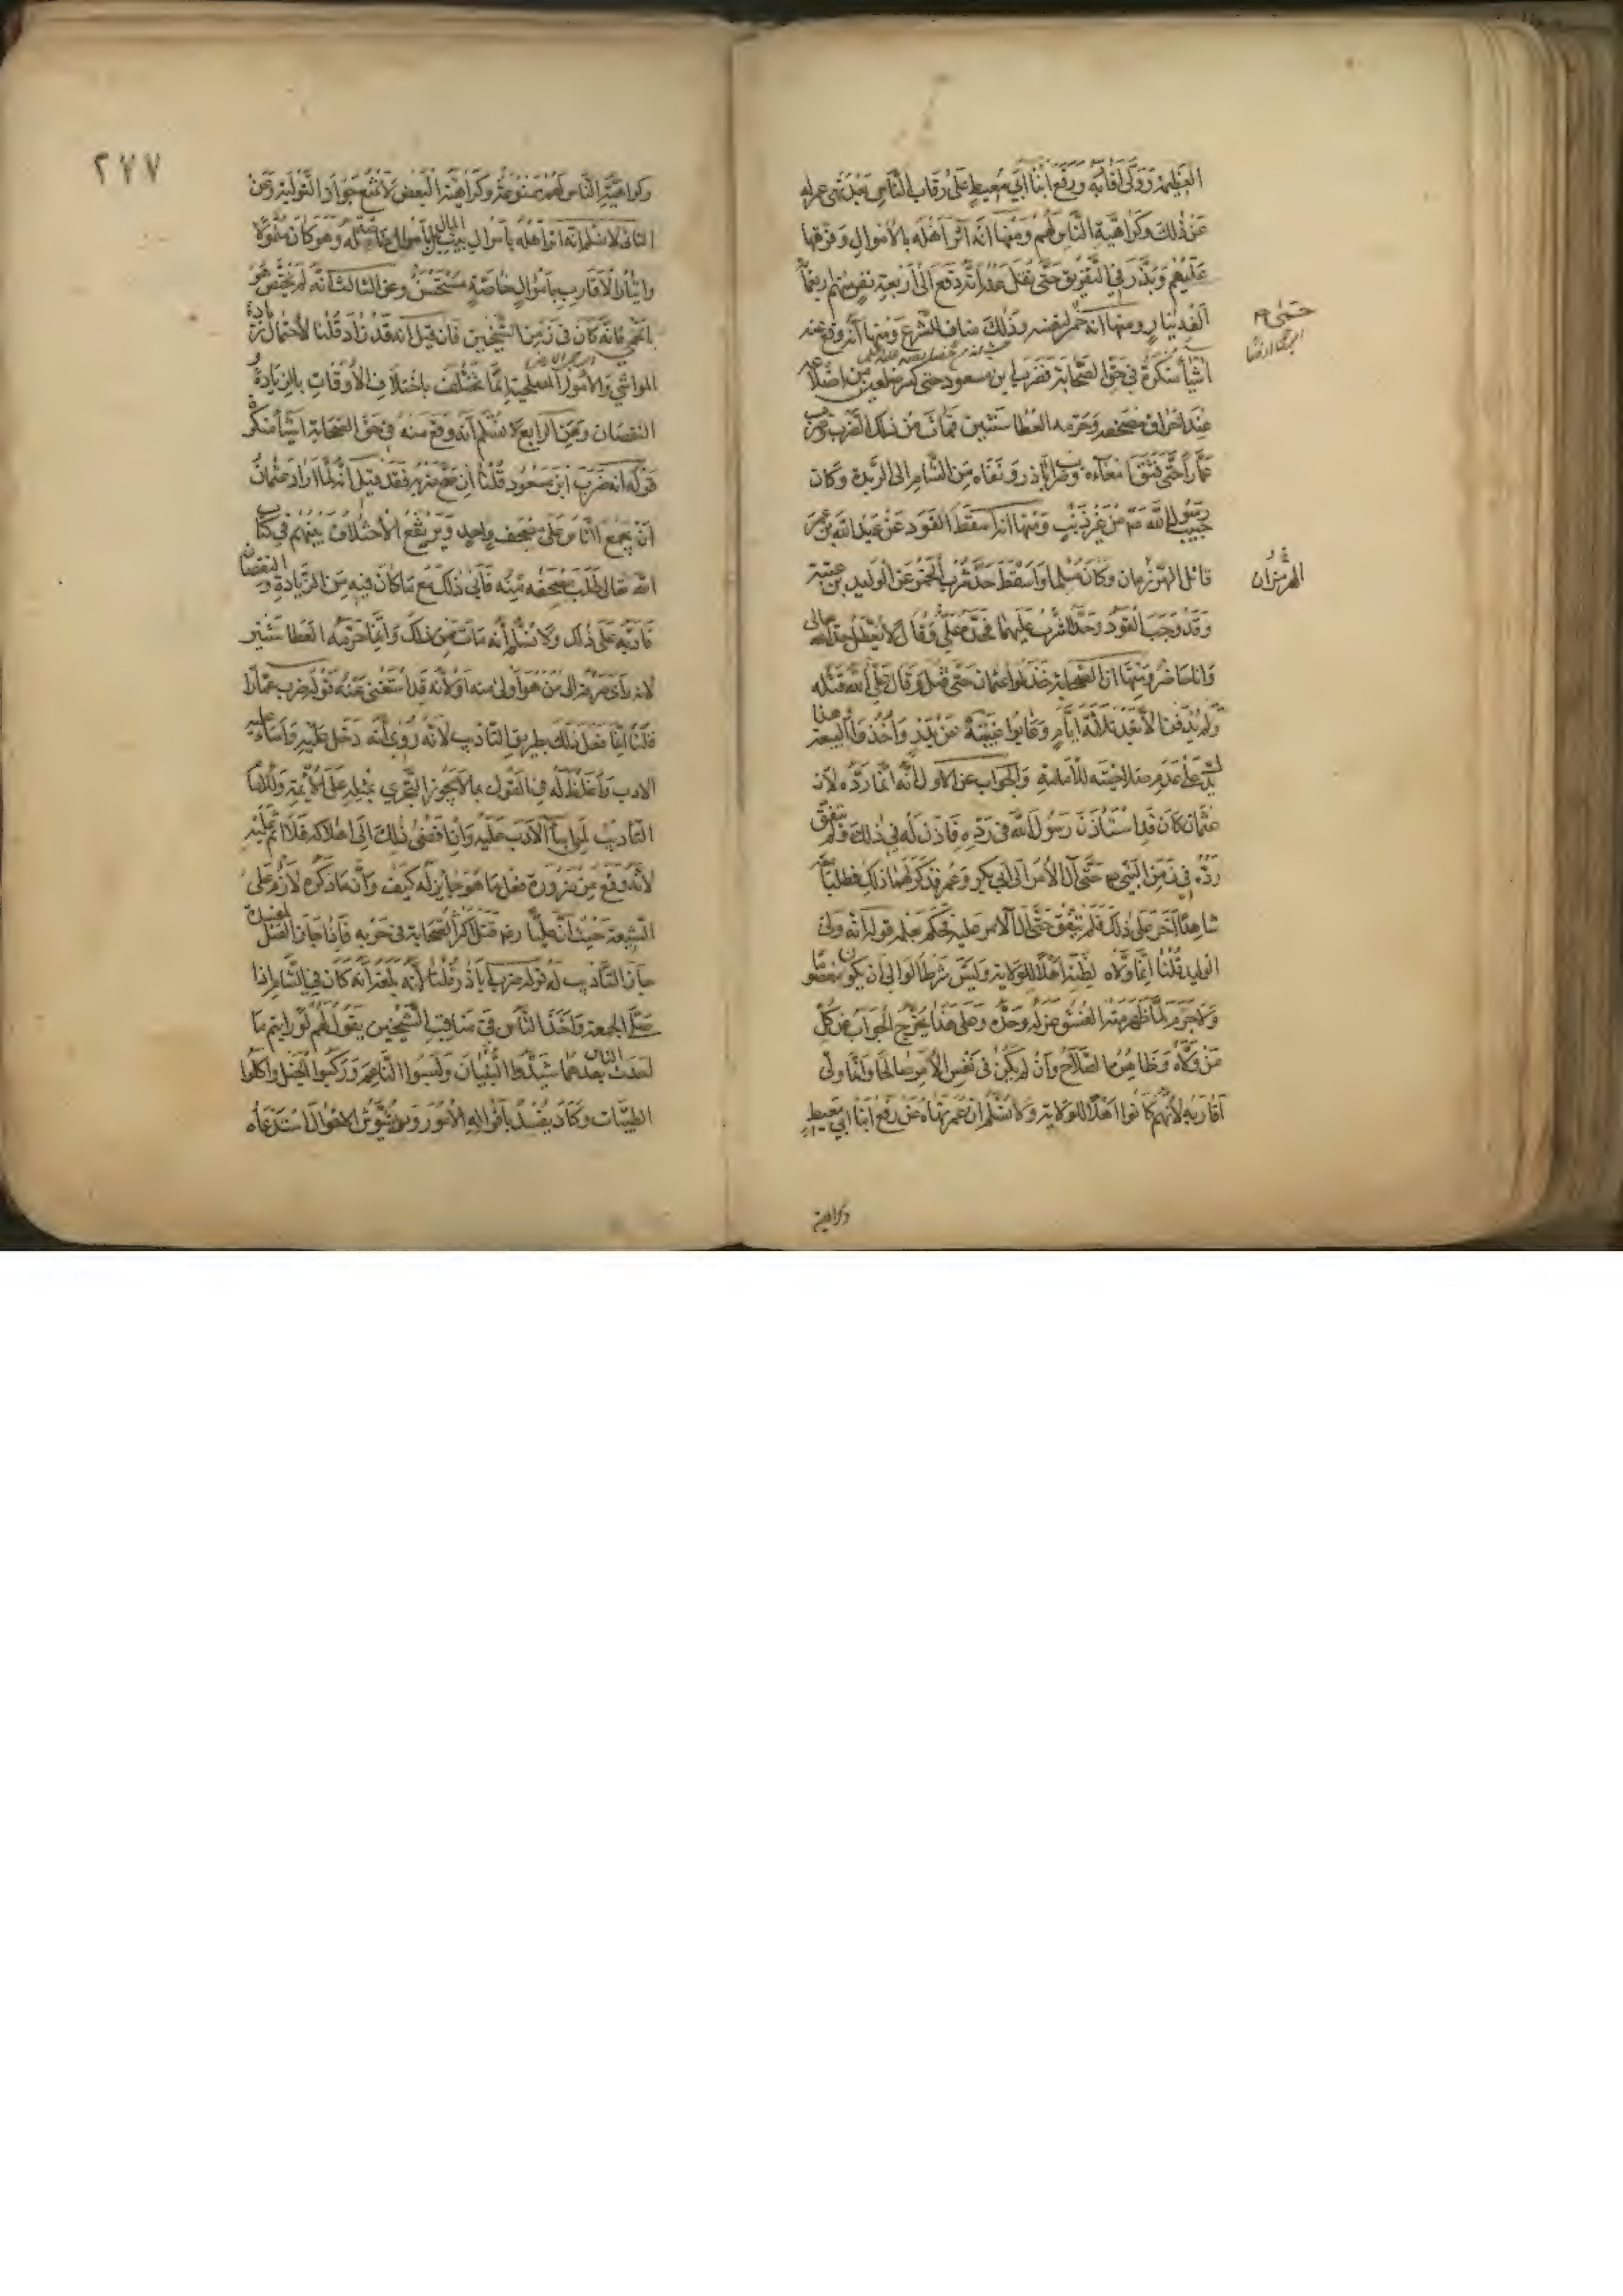 العظيمة وولى أقاربه ورفع ابنا أبي معيط على رقاب الناس بعد نهي عمر له
عن ذلك وكراهية الناس لهم ومنها أنه آثر أهله بالأموال وفرقها
عليهم وبذر في التفريق حتى نقل عنه أنه دفع إلى أربعة نفر منهم أربعمائة
ألف دينار ومنها أنه حمى لنفسه وذلك مناف للشرع ومنها أنه وقع عنه
أشياء منكرة في حق الصحابة فضرب ابن مسعود حتى كسر ضلعين من أضلاعه
عند إحراق مصحفه وحرمه العطا سنتين فمات من ذلك الضرب وضرب
عمارا حتى فتق أمعاءه وضرب أبا ذر ونفاه من الشام إلى الربذة وكان
حبيب رسول الله عم من غير ذنب ومنها أنه أسقط القود عن عبيد الله بن عمر
قاتل الهرمزان وكان مسلما وأسقط حد شرب الخمر عن الوليد بن عتبة
وقد وجب القود وحد الشرب عليهما فحده علي وقال لا يعطل حد الله تعالى
وأنا حاضر ومنها أن الصحابة خذلوا عثمان حتى قتل وقال علي الله قتله
ولم يدفن إلا بعد ثلاثة أيام وعابوا غيبته عن بدر وأحد والبيعة وهذا
يدل على عدم صلاحيته للإمامة والجواب عن الأول أنه إنما رده لأن
عثمان كان قد استأذن رسول الله في رده فأذن له في ذلك ولم يتفق
رده في زمن النبي حتى آل الأمر إلى أبي بكر وعمر فذكر لهما ذلك فطلبا
شاهدا آخر على ذلك فلم يتفق حتى آل الأمر عليه فحكم بعلمه قوله أنه ولى
الوليد قلنا إنما ولاه لظنه أهلا للولاية وليس شرط الوالي أن يكون معصوما
ولا جرم لما ظهر منه الفسق عزله وحده وعلى هذا يخرج الجواب عن كل
من ولاه وظاهره الصلاح وإن لم يكن في نفس الأمر صالحا وإنما ولى
أقاربه لأنهم كانوا أهلا للولاية ولا نسلم أن عمر نهاه عن رفع ابنا أبي معيط
وكراهية
الهرمزان
٢٧٧
وكراهية الناس لهم ممنوعة وكراهية البعض لا تمنع جواز التولية وعن
الثاني لا نسلم أنه آثر أهله بأموال بيت المال بل بأموال خاصته له وهو كان متمولا
وإيثار الأقارب بأموال خاصة مستحسن وعن الثالث أنه لم يختص هو
بالحمى فإنه كان في زمن الشيخين فإن قيل إنه قد زاد قلنا لاحتمال زيادة
المواشي والأمور المصلحية إنما تختلف باختلاف الأوقات بالزيادة و
النقصان وعن الرابع لا نسلم أنه وقع منه في حق الصحابة أشياء منكرة
قوله أنه ضرب ابن مسعود قلنا إن صح ضربه فقد قيل أنه لما أراد عثمان
أن يجمع الناس على مصحف واحد ويرتفع الاختلاف بينهم في كتاب
الله تعالى طلب مصحفه منه فأبى ذلك مع ما كان فيه من الزيادة والنقصان
فأدبه على ذلك ولا نسلم أنه مات من ذلك وإنما حرمه العطا سنتين
لأنه رأى صرفه إلى من هو أولى منه أو لأنه قد استغنى عنه قوله ضرب عمارا
قلنا إنما فعل ذلك بطريق التأديب لأنه روي أنه دخل عليه وأساء عليه
الأدب وأغلظ له في القول بما لا يجوز التجري بمثله على الأئمة وللإمام
التأديب لمن أساء الأدب عليه وإن أفضى ذلك إلى إهلاكه فلا إثم عليه
لأنه وقع من ضرورة فعل ما هو جايز له كيف وأن ما ذكره لازم على
الشيعة حيث أن عليا رضه قتل أكثر الصحابة في حربه فإذا جاز القتل
جاز التأديب له قوله ضرب أبا ذر قلنا لأنه بلغه أنه كان في الشام إذا
صلى الجمعة وأخذ الناس في مناقب الشيخين يقول لهم لو رأيتم ما
أحدث الناس بعدهما شيدوا البنيان ولبسوا الناعم وركبوا الخيل وأكلوا
الطيبات وكاد يفسد بأقواله الأمور ويشوش الأحوال استدعاه